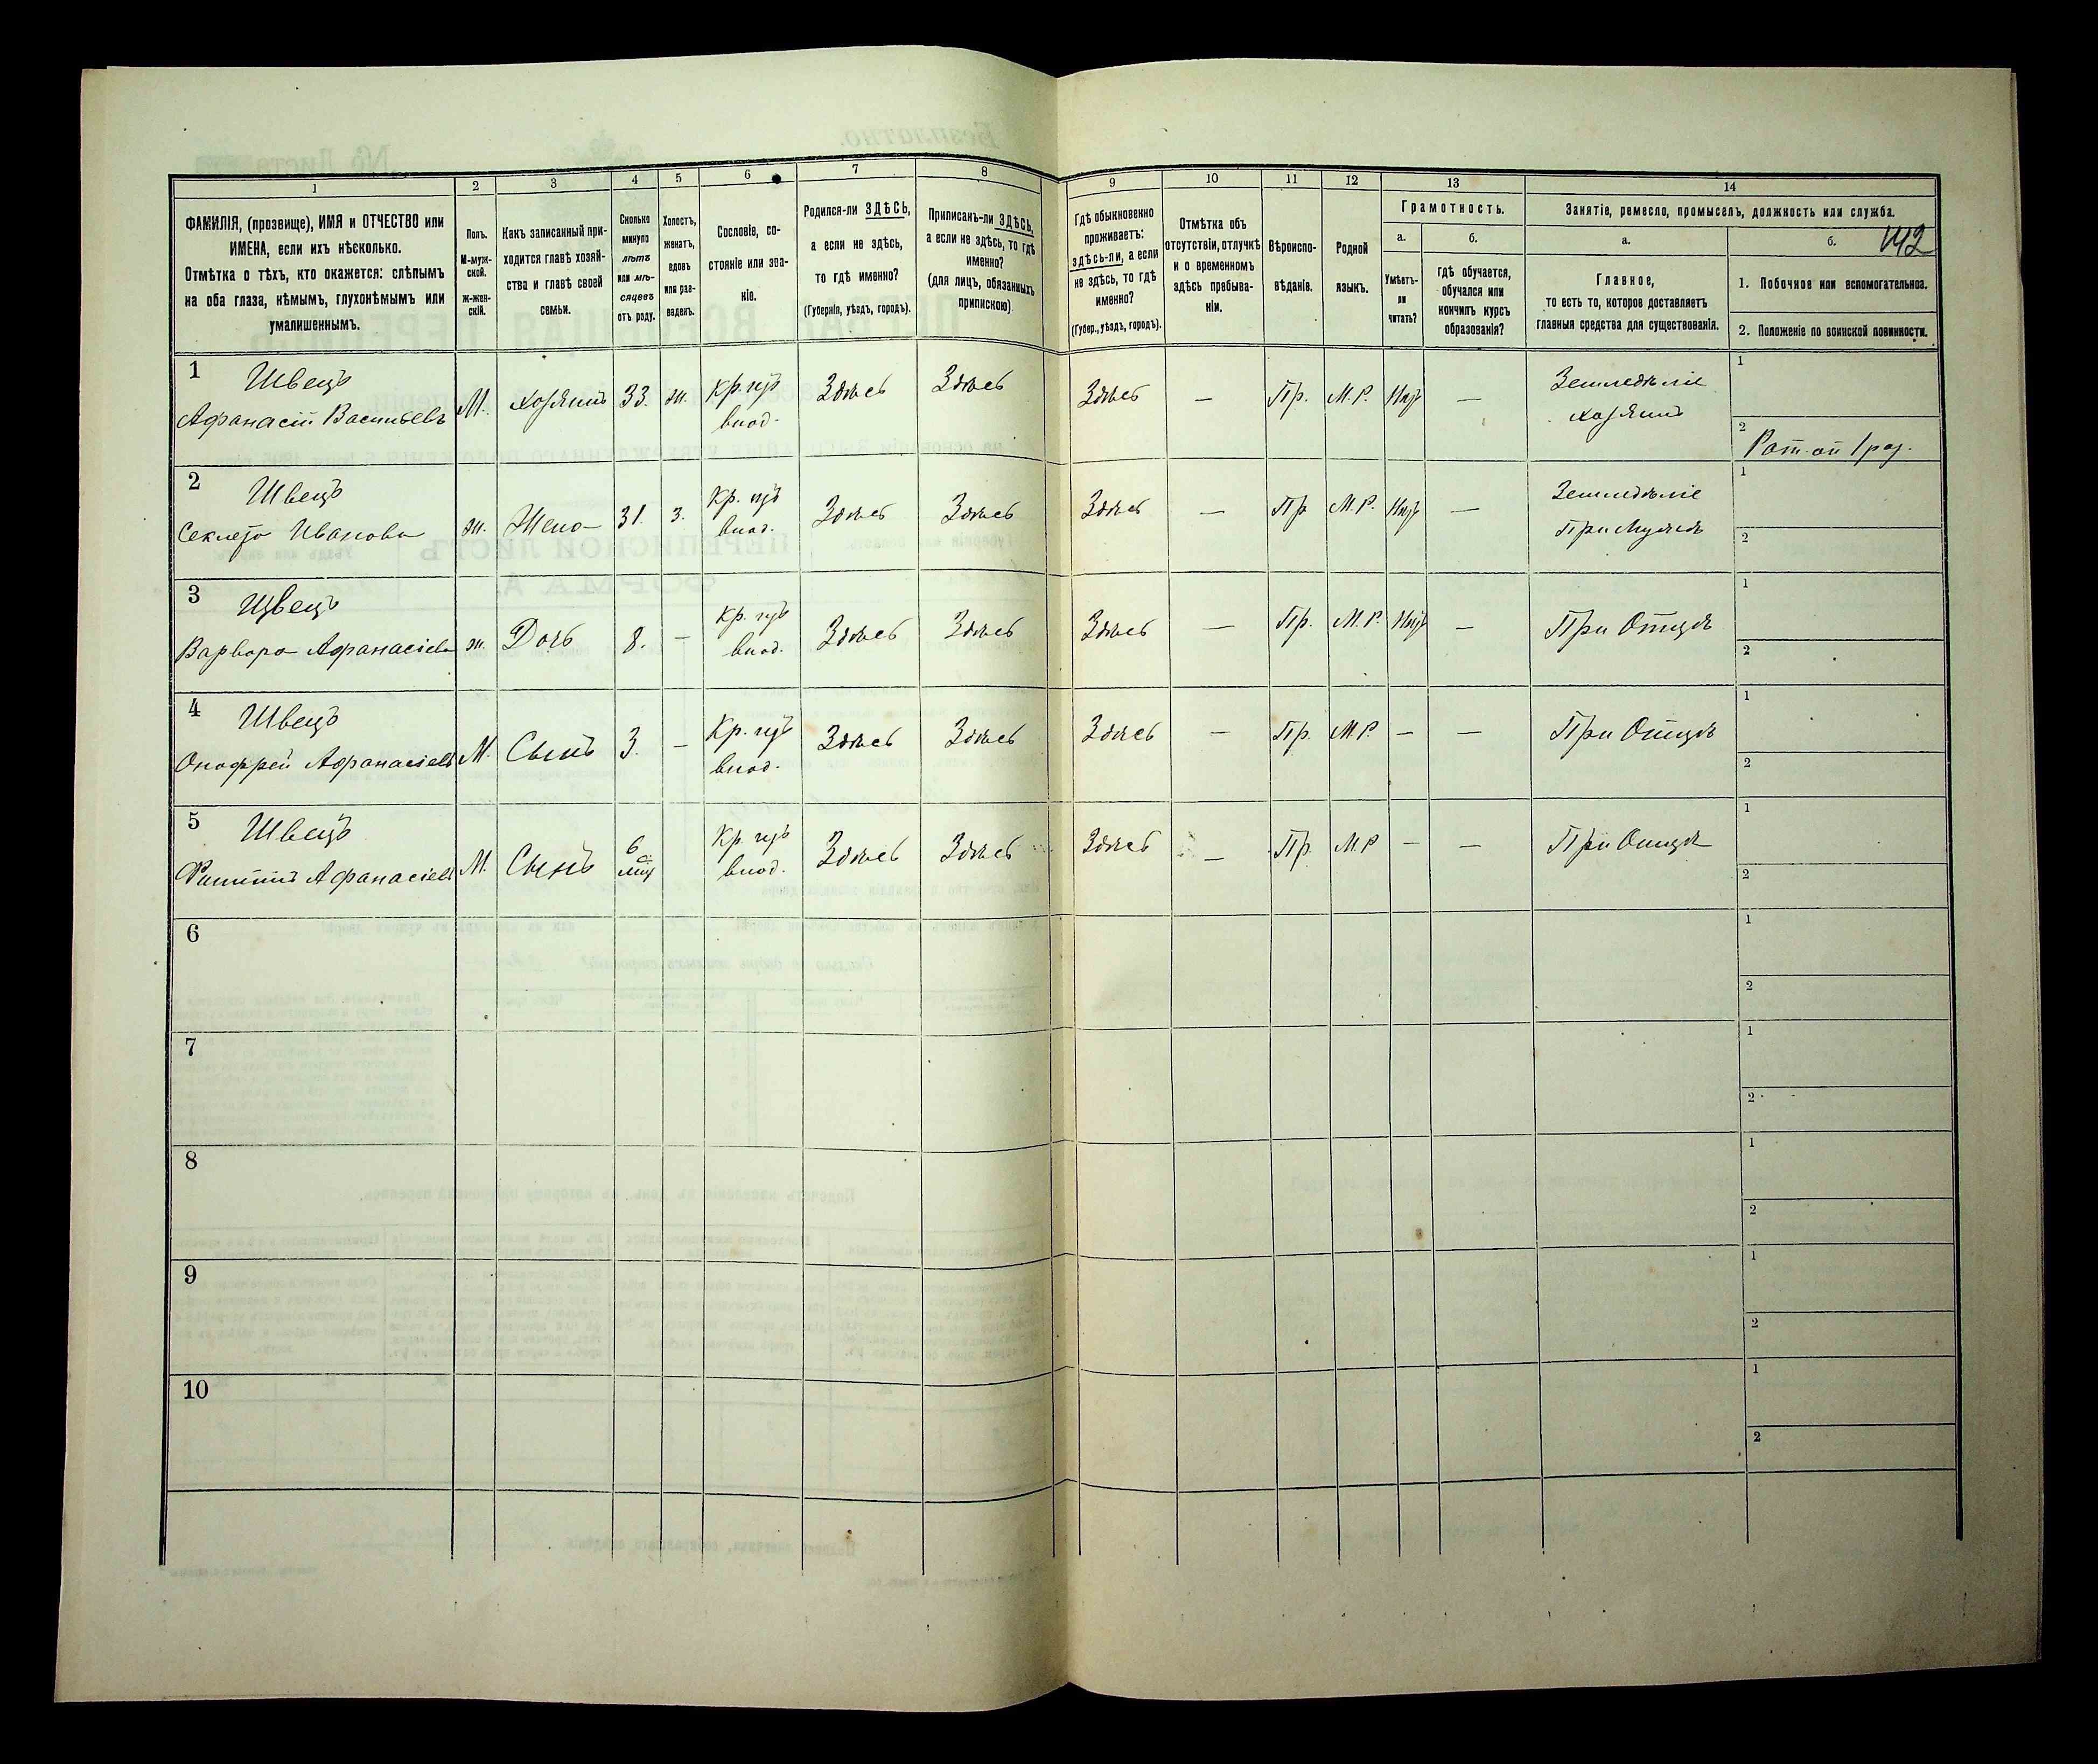 1 2 3 4 5 6 7 8 9 10 11 12 13 14
ФАМИЛІЯ, (прозвище), ИМЯ и ОТЧЕСТВО или
ИМЕНА, если ихъ нѣсколько.
Отмѣтка о тѣхъ, кто окажется: слѣпымъ
на оба глаза, нѣмымъ, глухонѣмымъ или
умалишеннымъ.
Полъ.
М-муж-
ской.
ж-жен-
скій.
Какъ записанный при-
ходится главѣ хозяй-
ства и главѣ своей
семьи.
Сколько
минуло
лѣтъ
или мѣ-
сяцевъ
отъ роду.
Холостъ,
женатъ,
вдовъ
или раз-
веденъ.
Сословіе, со-
стояніе или зва-
ніе.
Родился-ли ЗДѢСЬ,
а если не здѣсь,
то гдѣ именно?
(Губернія, уѣздъ, городъ).
Приписанъ-ли ЗДѢСЬ,
а если не здѣсь, то гдѣ
именно?
(для лицъ, обязанныхъ
припискою)
Гдѣ обыкновенно
проживаетъ:
здѣсь-ли, а если
не здѣсь, то гдѣ
именно?
(Губер., уѣздъ, городъ).
Отмѣтка объ
отсутствіи, отлучкѣ
и о временномъ
здѣсь пребыва-
ніи.
Вѣроиспо-
вѣданіе.
Родной
языкъ.
Грамотность.
а.
Умѣетъ-
ли
читать?
б.
гдѣ обучается,
обучался или
кончилъ курсъ
образованія?
Занятіе, ремесло, промыселъ, должность или служба.
а.
Главное,
то есть то, которое доставляетъ
главныя средства для существованія.
б.
142
1. Побочное или вспомогательное.
2. Положеніе по воинской повинности.
1 Швецъ
Афанасій Васильевъ М. хозяинъ 33. ж. Кр. изъ Здѣсь Здѣсь Здѣсь — Пр. М.Р. Нѣтъ — Земледѣліе 1
влад. хозяинъ
2 Рат. оп 1 раз.
2 Швецъ
Иванова ж. Жена 31. з. Кр. изъ Здѣсь Здѣсь Здѣсь — Пр М.Р. Нѣтъ — Земледѣліе 1
влад. При Мужѣ 2
3 Швецъ
Варвара Афанасіева ж. Дочь 8. — Кр. изъ Здѣсь Здѣсь Здѣсь — Пр. М.Р. Нѣтъ — При Отцѣ 1
влад. 2
4 Швецъ
Онофрей Афанасіевъ М. Сынъ 3. — Кр. изъ Здѣсь Здѣсь Здѣсь — Пр. М.Р. — — При Отцѣ 1
влад. 2
5 Швецъ
Афанасіевъ М. Сынъ 6 Кр изъ Здѣсь Здѣсь Здѣсь — Пр. М Р — — При Отцѣ 1
влад. 2
6 1
2
7 1
2
8 1
2
9 1
2
10 1
2